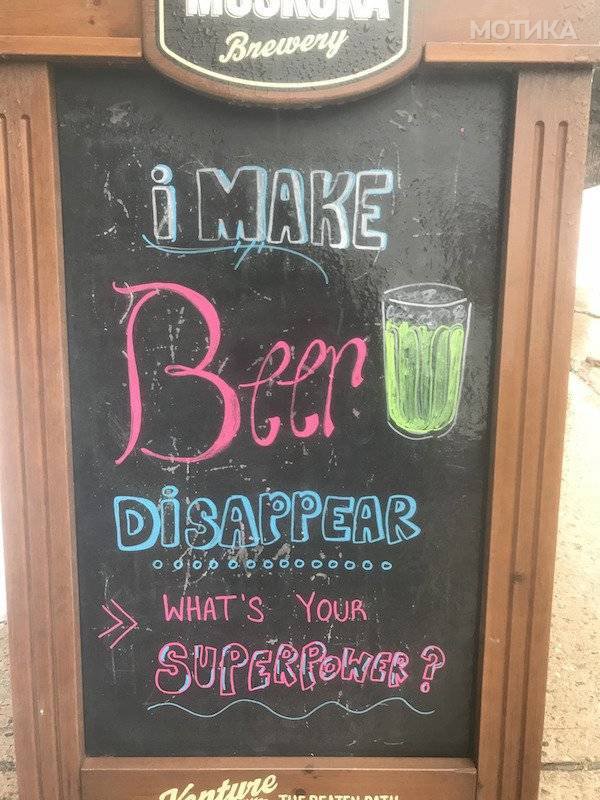 МОТИКА
MUSKOKA
Brewery
i MAKE
Beer
DiSAPPEAR
WHAT'S YOUR
SUPERPOWER?
Venture
THE BEATEN PATH